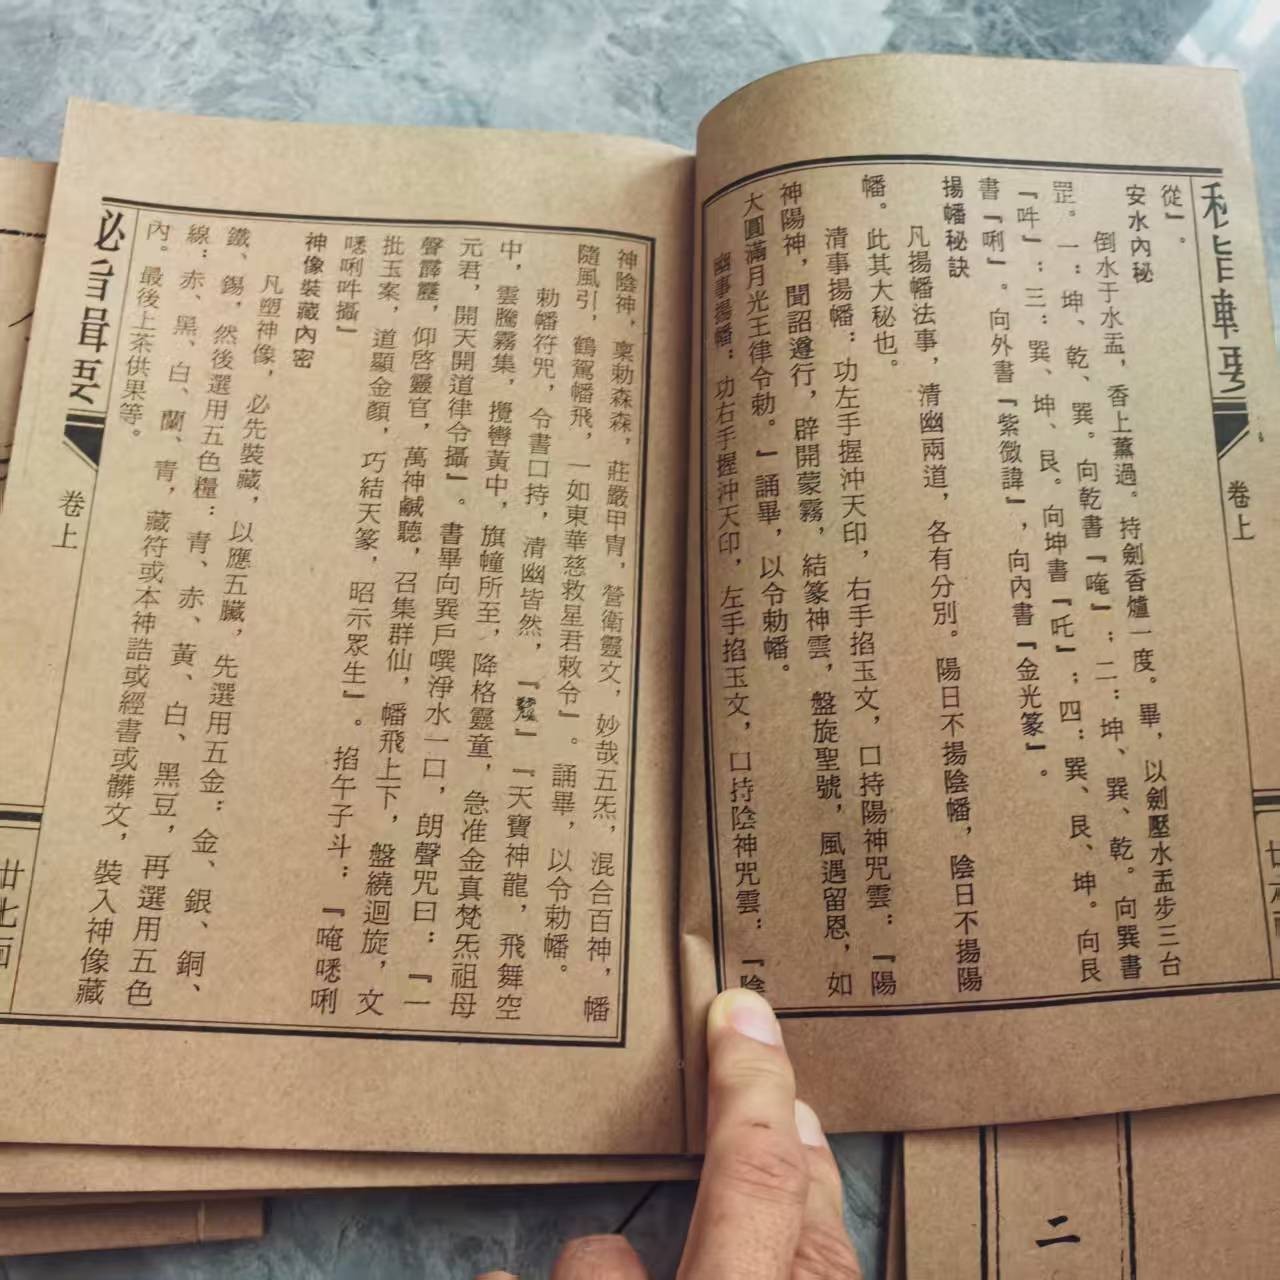 卷上
從』。
安水內秘
倒水于水盂，香上薰過。持劍香爐一度。畢，以劍壓水盂步三台
罡。一：坤、乾、巽。向乾書『唵』；二：坤、巽、乾。向巽書
『吽』；三：巽、坤、艮。向坤書『吒』；四：巽、艮、坤。向艮
書『唎』。向外書『紫微諱』，向內書『金光篆』。
揚幡秘訣
凡揚幡法事，清幽兩道，各有分別。陽日不揚陰幡，陰日不揚陽
幡。此其大秘也。
清事揚幡：功左手握沖天印，右手掐玉文，口持陽神咒雲：『陽
神陽神，聞詔遵行，辟開蒙霧，結篆神雲，盤旋聖號，風遇留恩，如
大圓滿月光王律令勅。』誦畢，以令勅幡。
幽事揚幡：功右手握沖天印，左手掐玉文，口持陰神咒雲：『陰
神陰神，稟勅森森，莊嚴甲冑，營衛靈文，妙哉五炁，混合百神，幡
隨風引，鶴駕幡飛，一如東華慈救星君敕令』。誦畢，以令勅幡。
勅幡符咒，令書口持，清幽皆然，『』『天寶神龍，飛舞空
中，雲騰霧集，攪轡黃中，旗幢所至，降格靈童，急准金真梵炁祖母
元君，開天開道律令攝』。書畢向巽戶噀淨水一口，朗聲咒曰：『一
聲霹靂，仰啓靈官，萬神鹹聽，召集群仙，幡飛上下，盤繞迴旋，文
批玉案，道顯金顏，巧結天篆，昭示眾生』。掐午子斗：『唵㗭唎
㗭唎吽攝』
神像裝藏內密
凡塑神像，必先裝藏，以應五臟，先選用五金：金、銀、銅、
鐵、錫，然後選用五色糧：青、赤、黃、白、黑豆，再選用五色
線：赤、黑、白、蘭、青，藏符或本神誥或經書或髒文，裝入神像藏
內。最後上茶供果等。
必旨輯要
卷上
廿七
二